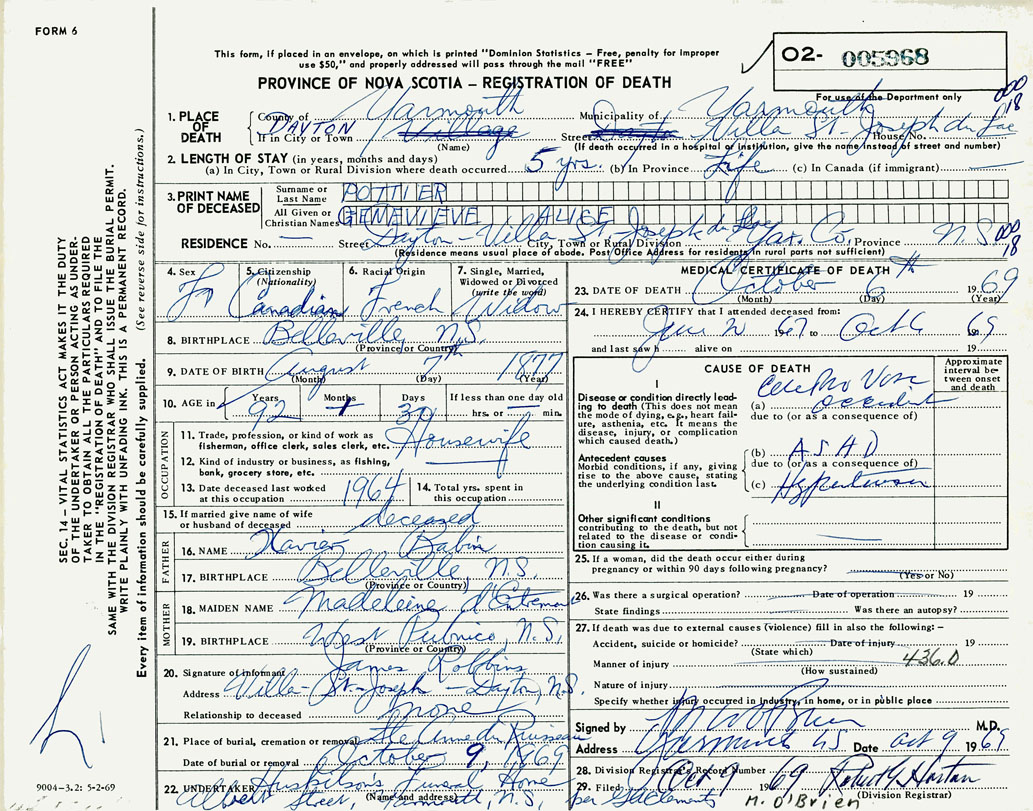 FORM 6
This form, if placed in an envelope, on which is printed "Dominion Statistics – Free, penalty for improper
use $50," and properly addressed will pass through the mail "FREE"
PROVINCE OF NOVA SCOTIA – REGISTRATION OF DEATH
O2- 005968
For use of the Department only
000
18
1. PLACE OF DEATH
County of Yarmouth Municipality of Yarmouth
If in City or Town DAYTON Village Street Dayton Villa St-Joseph du Lac House No.
(Name) (If death occurred in a hospital or institution, give the name instead of street and number)
2. LENGTH OF STAY (in years, months and days)
(a) In City, Town or Rural Division where death occurred 5 yrs. (b) In Province Life (c) In Canada (if immigrant)
3. PRINT NAME OF DECEASED
Surname or Last Name POTTIER
All Given or Christian Names GENEVIEVE ALICE
RESIDENCE No. — Street Dayton - Villa St-Joseph du Lac City, Town or Rural Division Yar. Co. Province N.S.
(Residence means usual place of abode. Post Office Address for residents in rural parts not sufficient)
000
18
4. Sex F
5. Citizenship (Nationality) Canadian
6. Racial Origin French
7. Single, Married, Widowed or Divorced (write the word) Widow
8. BIRTHPLACE Belleville, N.S.
(Province or Country)
9. DATE OF BIRTH August 7th 1877
(Month) (Day) (Year)
10. AGE in Years 92 Months 1 Days 30 If less than one day old hrs. or min.
OCCUPATION
11. Trade, profession or kind of work as fisherman, office clerk, sales clerk, etc. Housewife
12. Kind of industry or business, as fishing, bank, grocery store, etc.
13. Date deceased last worked at this occupation 1964
14. Total yrs. spent in this occupation
15. If married give name of wife or husband of deceased deceased
FATHER
16. NAME Xavier Babin
17. BIRTHPLACE Belleville, N.S.
(Province or Country)
MOTHER
18. MAIDEN NAME Madeleine d'Entremont
19. BIRTHPLACE West Pubnico, N.S.
(Province or Country)
20. Signature of informant James Robbins
Address Villa-St-Joseph - Dayton, N.S.
Relationship to deceased none
21. Place of burial, cremation or removal Ste Anne du Ruisseau
Date of burial or removal October 9, 1969
22. UNDERTAKER Huskilson's Funeral Home
(Name and address)
Albert Street, N.S.
MEDICAL CERTIFICATE OF DEATH
23. DATE OF DEATH October 6th 1969
(Month) (Day) (Year)
24. I HEREBY CERTIFY that I attended deceased from:
Jun 2 1967 to Oct 6 1969
and last saw h alive on 19
CAUSE OF DEATH
Approximate interval between onset and death
I
Disease or condition directly leading to death (This does not mean the mode of dying, e.g., heart failure, asthenia, etc. It means the disease, injury, or complication which caused death.)
(a) Cerebro Vasc accident
due to (or as a consequence of)
Antecedent causes
Morbid conditions, if any, giving rise to the above cause, stating the underlying condition last.
(b) A.S.H.D
due to (or as a consequence of)
(c) Hypertension
II
Other significant conditions contributing to the death, but not related to the disease or condition causing it.
25. If a woman, did the death occur either during pregnancy or within 90 days following pregnancy?
(Yes or No)
26. Was there a surgical operation? Date of operation 19
State findings Was there an autopsy?
27. If death was due to external causes (violence) fill in also the following: –
Accident, suicide or homicide? Date of injury 19
(State which)
436.0
Manner of injury
(How sustained)
Nature of injury
Specify whether injury occurred in industry, in home, or in public place
Signed by M O'Brien M.D.
Address Yarmouth NS Date Oct 9 1969
28. Division Registrar's Record Number
29. Filed Oct 9 1969 Robert G. Horton
(Division Registrar)
M. O'Brien
SEC. 14 – VITAL STATISTICS ACT MAKES IT THE DUTY
OF THE UNDERTAKER OR PERSON ACTING AS UNDER-
TAKER TO OBTAIN ALL THE PARTICULARS REQUIRED
IN THE "REGISTRATION OF DEATH" AND TO FILE THE
SAME WITH THE DIVISION REGISTRAR WHO SHALL ISSUE THE BURIAL PERMIT.
WRITE PLAINLY WITH UNFADING INK. THIS IS A PERMANENT RECORD.
Every item of information should be carefully supplied. (See reverse side for instructions.)
9004–3.2: 5-2-69